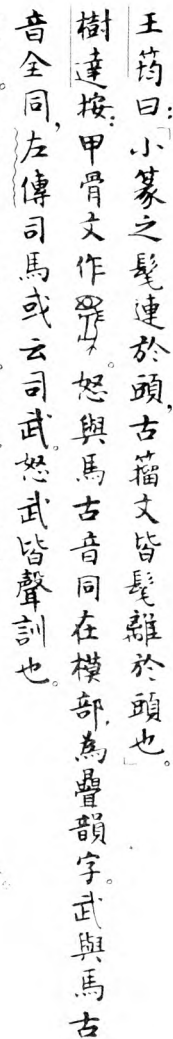 王筠曰：「小篆之髦連於頭，古籀文皆髦離於頭也。」
樹達按：甲骨文作。怒與馬古音同在模部，為疊韻字。武與馬古
音全同，左傳司馬或云司武。怒武皆聲訓也。